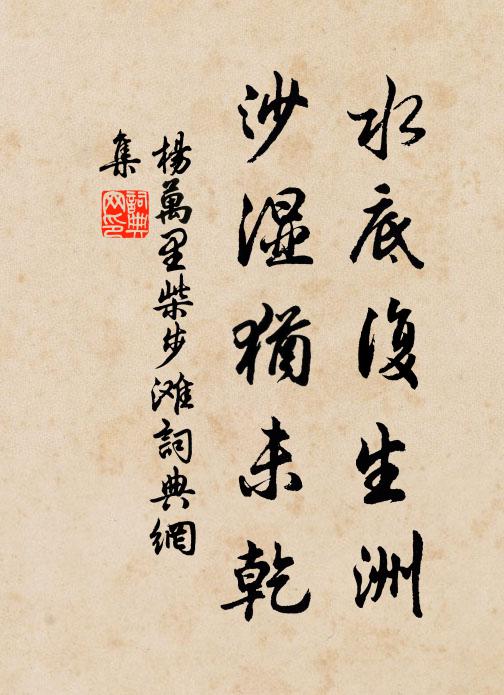 水底復生洲
沙湿猶未乾
楊萬里柴步滩詞典網
集
詞典
网印